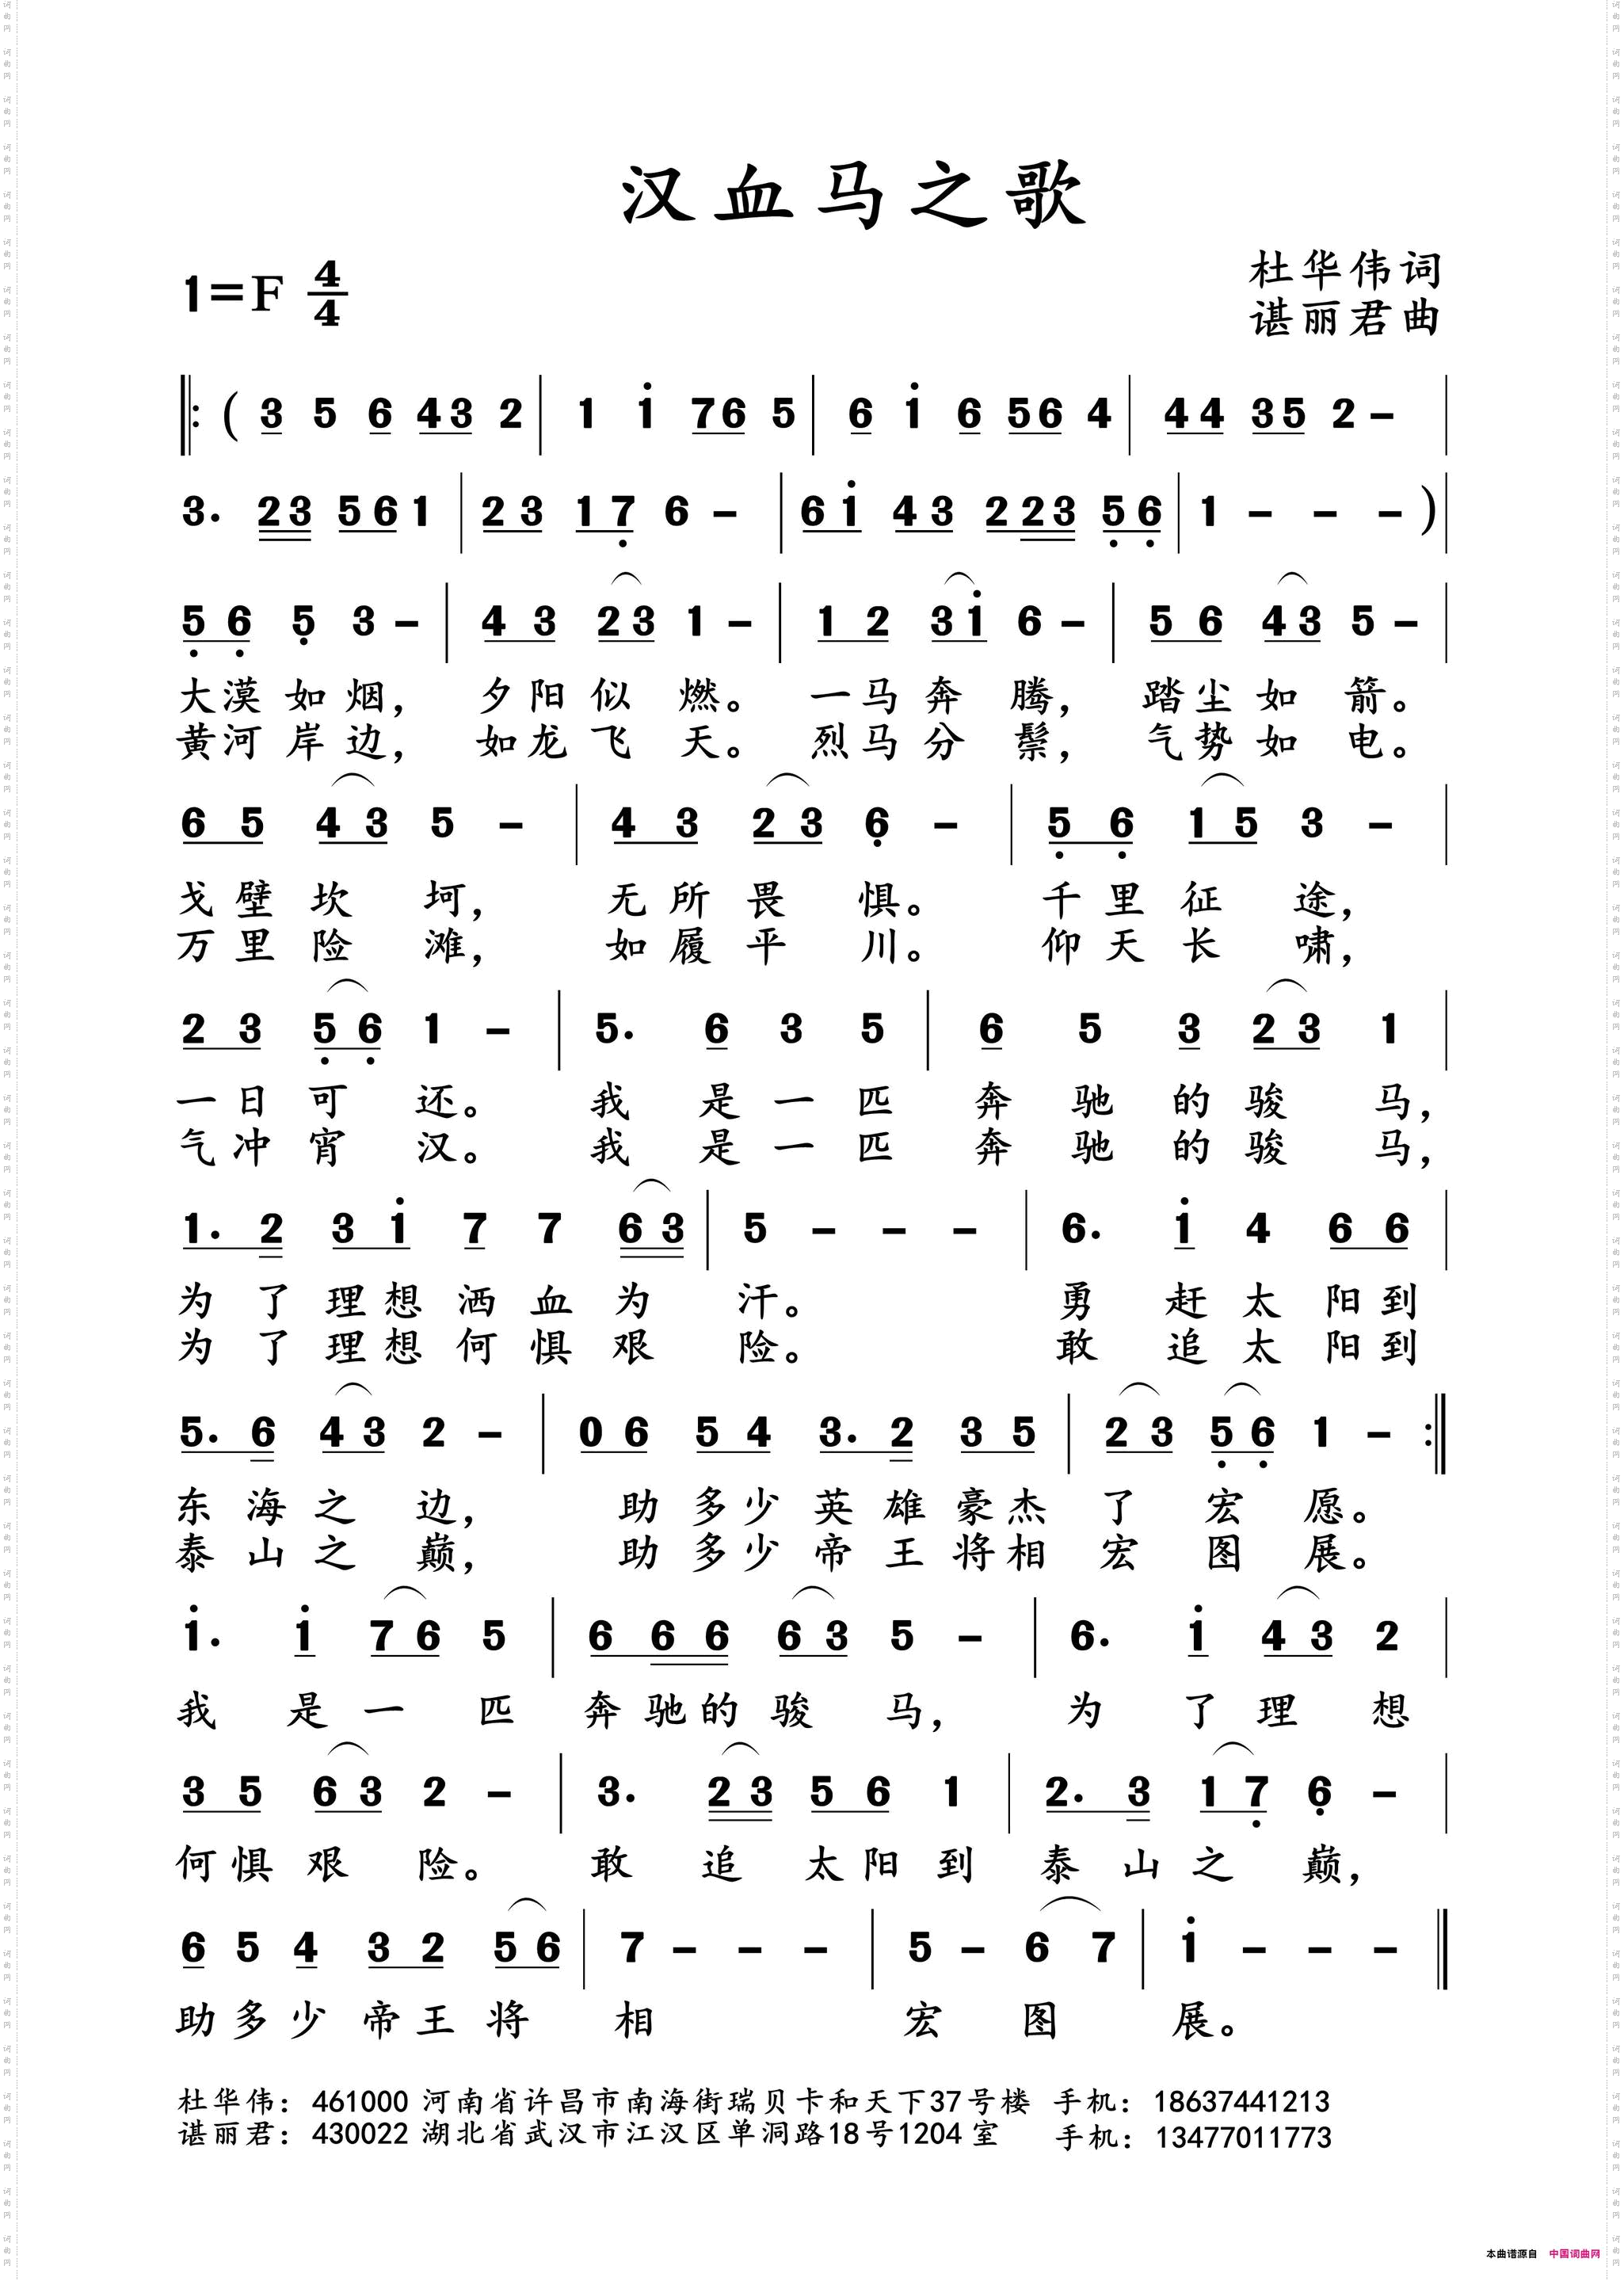 汉血马之歌
1=F 4/4
杜华伟词
谌丽君曲
‖: ( 3 5 6 4 3 2 | 1 1̇ 7 6 5 | 6 1̇ 6 5 6 4 | 4 4 3 5 2 – |
3. 2 3 5 6 1 | 2 3 1 7̣ 6 – | 6 1̇ 4 3 2 2 3 5̣ 6̣ | 1 – – – ) |
5̣ 6̣ 5̣ 3 – | 4 3 2 3 1 – | 1 2 3 1̇ 6 – | 5 6 4 3 5 – |
大漠如烟， 夕阳似燃。 一马奔腾， 踏尘如箭。
黄河岸边， 如龙飞天。 烈马分鬃， 气势如电。
6 5 4 3 5 – | 4 3 2 3 6̣ – | 5̣ 6̣ 1 5 3 – |
戈壁坎坷， 无所畏惧。 千里征途，
万里险滩， 如履平川。 仰天长啸，
2 3 5̣ 6̣ 1 – | 5. 6 3 5 | 6 5 3 2 3 1 |
一日可还。 我是一匹 奔驰的骏马，
气冲宵汉。 我是一匹 奔驰的骏马，
1. 2 3 1̇ 7 7 6 3 | 5 – – – | 6. 1̇ 4 6 6 |
为了理想洒血为汗。 勇赶太阳到
为了理想何惧艰险。 敢追太阳到
5. 6 4 3 2 – | 0 6 5 4 3. 2 3 5 | 2 3 5̣ 6̣ 1 – :‖
东海之边， 助多少英雄豪杰了宏愿。
泰山之巅， 助多少帝王将相宏图展。
1̇. 1̇ 7 6 5 | 6 6 6 6 3 5 – | 6. 1̇ 4 3 2 |
我是一匹 奔驰的骏马， 为了理想
3 5 6 3 2 – | 3. 2 3 5 6 1 | 2. 3 1 7̣ 6̣ – |
何惧艰险。 敢追太阳到 泰山之巅，
6 5 4 3 2 5 6 | 7 – – – | 5 – 6 7 | 1̇ – – – ‖
助多少帝王将相 宏图展。
杜华伟：461000 河南省许昌市南海街瑞贝卡和天下37号楼 手机：18637441213
谌丽君：430022 湖北省武汉市江汉区单洞路18号1204 室 手机：13477011773
本曲谱源自 中国词曲网